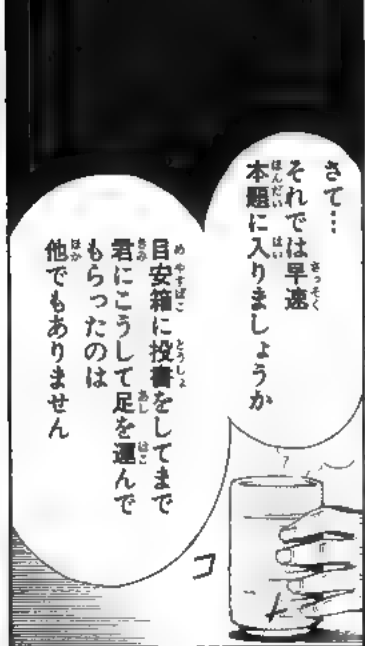 さて…
それでは早速
本題に入りましょうか
目安箱に投書をしてまで
君にこうして足を運んで
もらったのは
他でもありません
コト